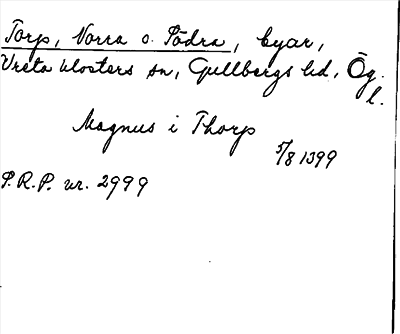 Torp, Norra o. Södra, byar,
Vreta klosters sn, Gullbergs hd, Ög.
l.
Magnus i Thorp
5/8 1399
S.R.P. nr. 2999